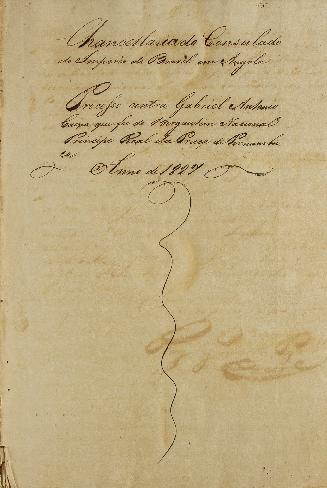 Chancellaria do Consulado
do Imperio do Brasil em Angola
Processo contra Gabriel Antonio
que fes do Bergantim Nacional
Principe Real da Praça de Pernambu
co
Anno de 1827